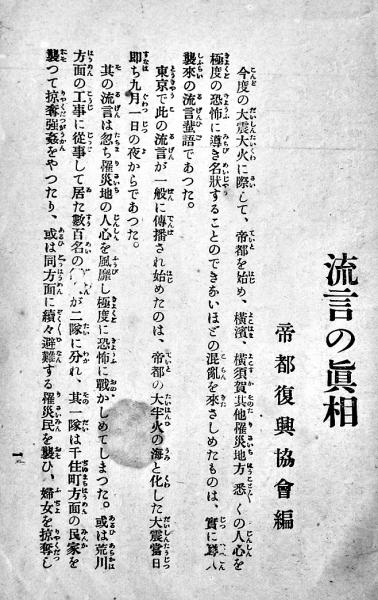 流言の眞相
帝都復興協會編
今度の大震大火に際して、帝都を始め、橫濱、橫須賀其他罹災地方、悉くの人心を
極度の恐怖に導き名狀することのできないほどの混亂を來さしめたものは、實に
襲來の流言蜚語であつた。
東京で此の流言が一般に傳播され始めたのは、帝都の大半火の海と化した大震當日
即ち九月一日の夜からであつた。
其の流言は忽ち罹災地の人心を風靡し極度に恐怖に戰かしめてしまつた。或は荒川
方面の工事に從事して居た數百名の が二隊に分れ、其一隊は千住町方面の民家を
襲つて掠奪強姦をやつたり、或は同方面に續々避難する罹災民を襲ひ、婦女を掠奪し
一